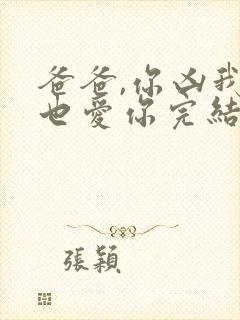 爸爸,你凶我
也愛你完結
張穎